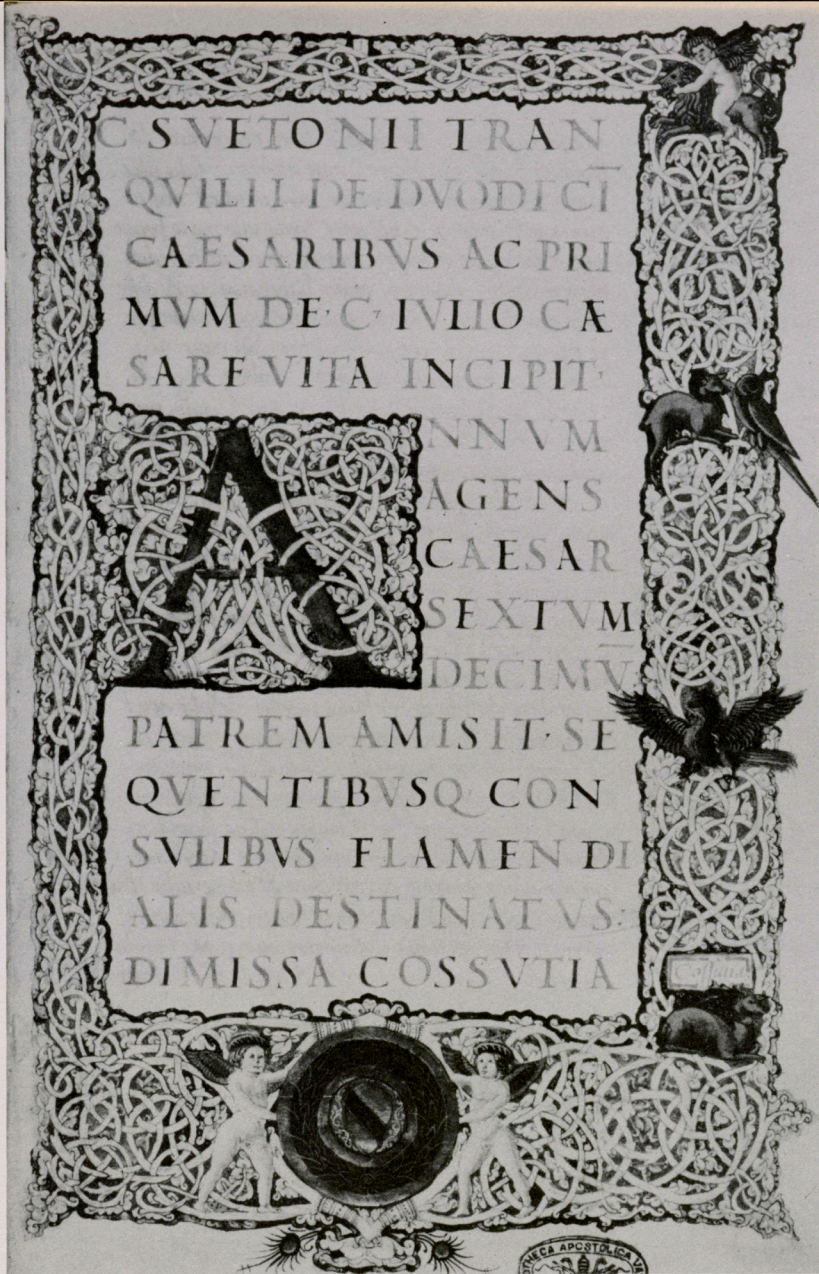 C SVETONII TRAN
QVILII DE DVODECĪ
CAESARIBVS AC PRI
MVM DE·C·IVLIO CÆ
SARE VITA INCIPIT·
A NNVM
AGENS
CAESAR
SEXTVM
DECIMV̄
PATREM AMISIT·SE
QVENTIBVSQ· CON
SVLIBVS FLAMEN DI
ALIS DESTINATVS:
DIMISSA COSSVTIA
Cossutia
OTHECA APOSTOLICA VA